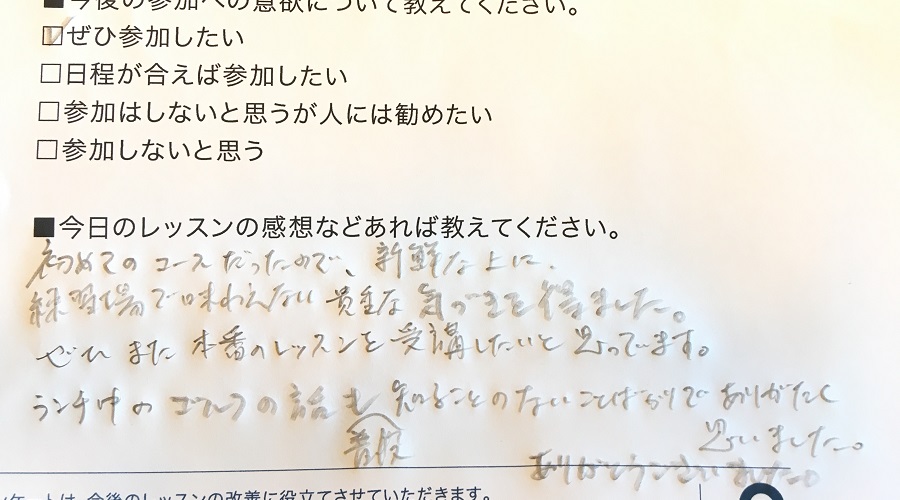 ■今後の参加への意欲について教えてください。
☑ぜひ参加したい
□日程が合えば参加したい
□参加はしないと思うが人には勧めたい
□参加しないと思う
■今日のレッスンの感想などあれば教えてください。
初めてのコースだったので、新鮮な上に、
練習場で味わえない貴重な気づきを得ました。
ぜひまた本番のレッスンを受講したいと思ってます。
ランチ中のゴルフの話も普段知ることのないことばかりでありがたく
思いました。
ありがとうございました。
ンケートは、今後のレッスンの改善に役立てさせていただきます。